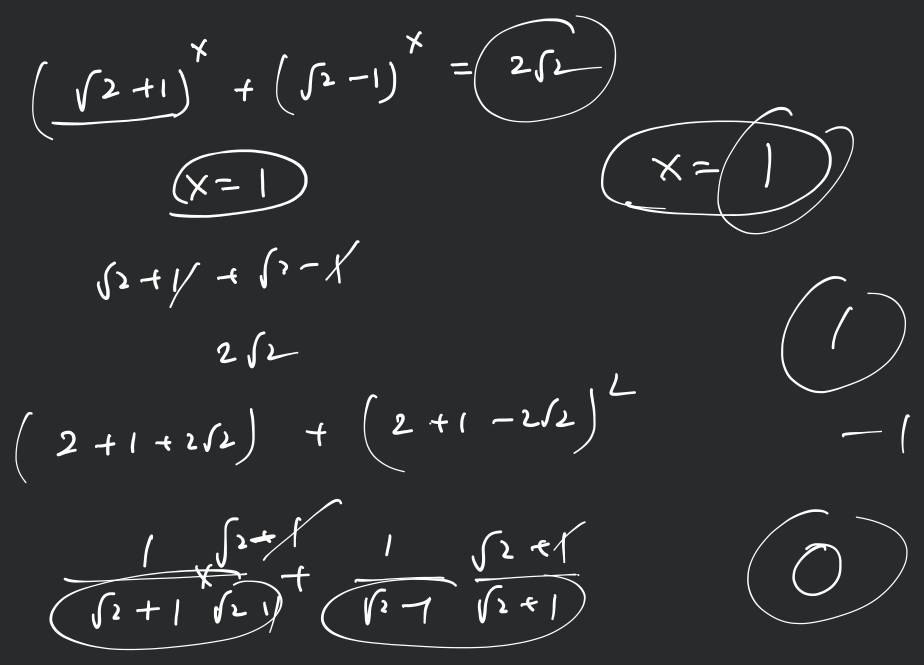 (√2+1)^x + (√2-1)^x = 2√2
x=1
x=1
√2+1 + √2-1
1
2√2
(2+1+2√2) + (2+1-2√2)^2
-1
1/(√2+1) × (√2-1)/(√2-1) + 1/(√2-1) (√2+1)/(√2+1)
0